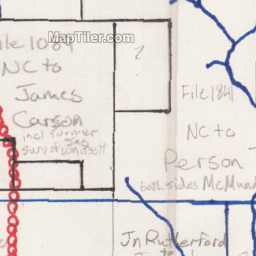 MapTiler.com
File 1084
NC to
James
Carson
incl former
Jas
surv
?
File 1841
NC to
Person
both sides McMund
Jn Rutherford
to